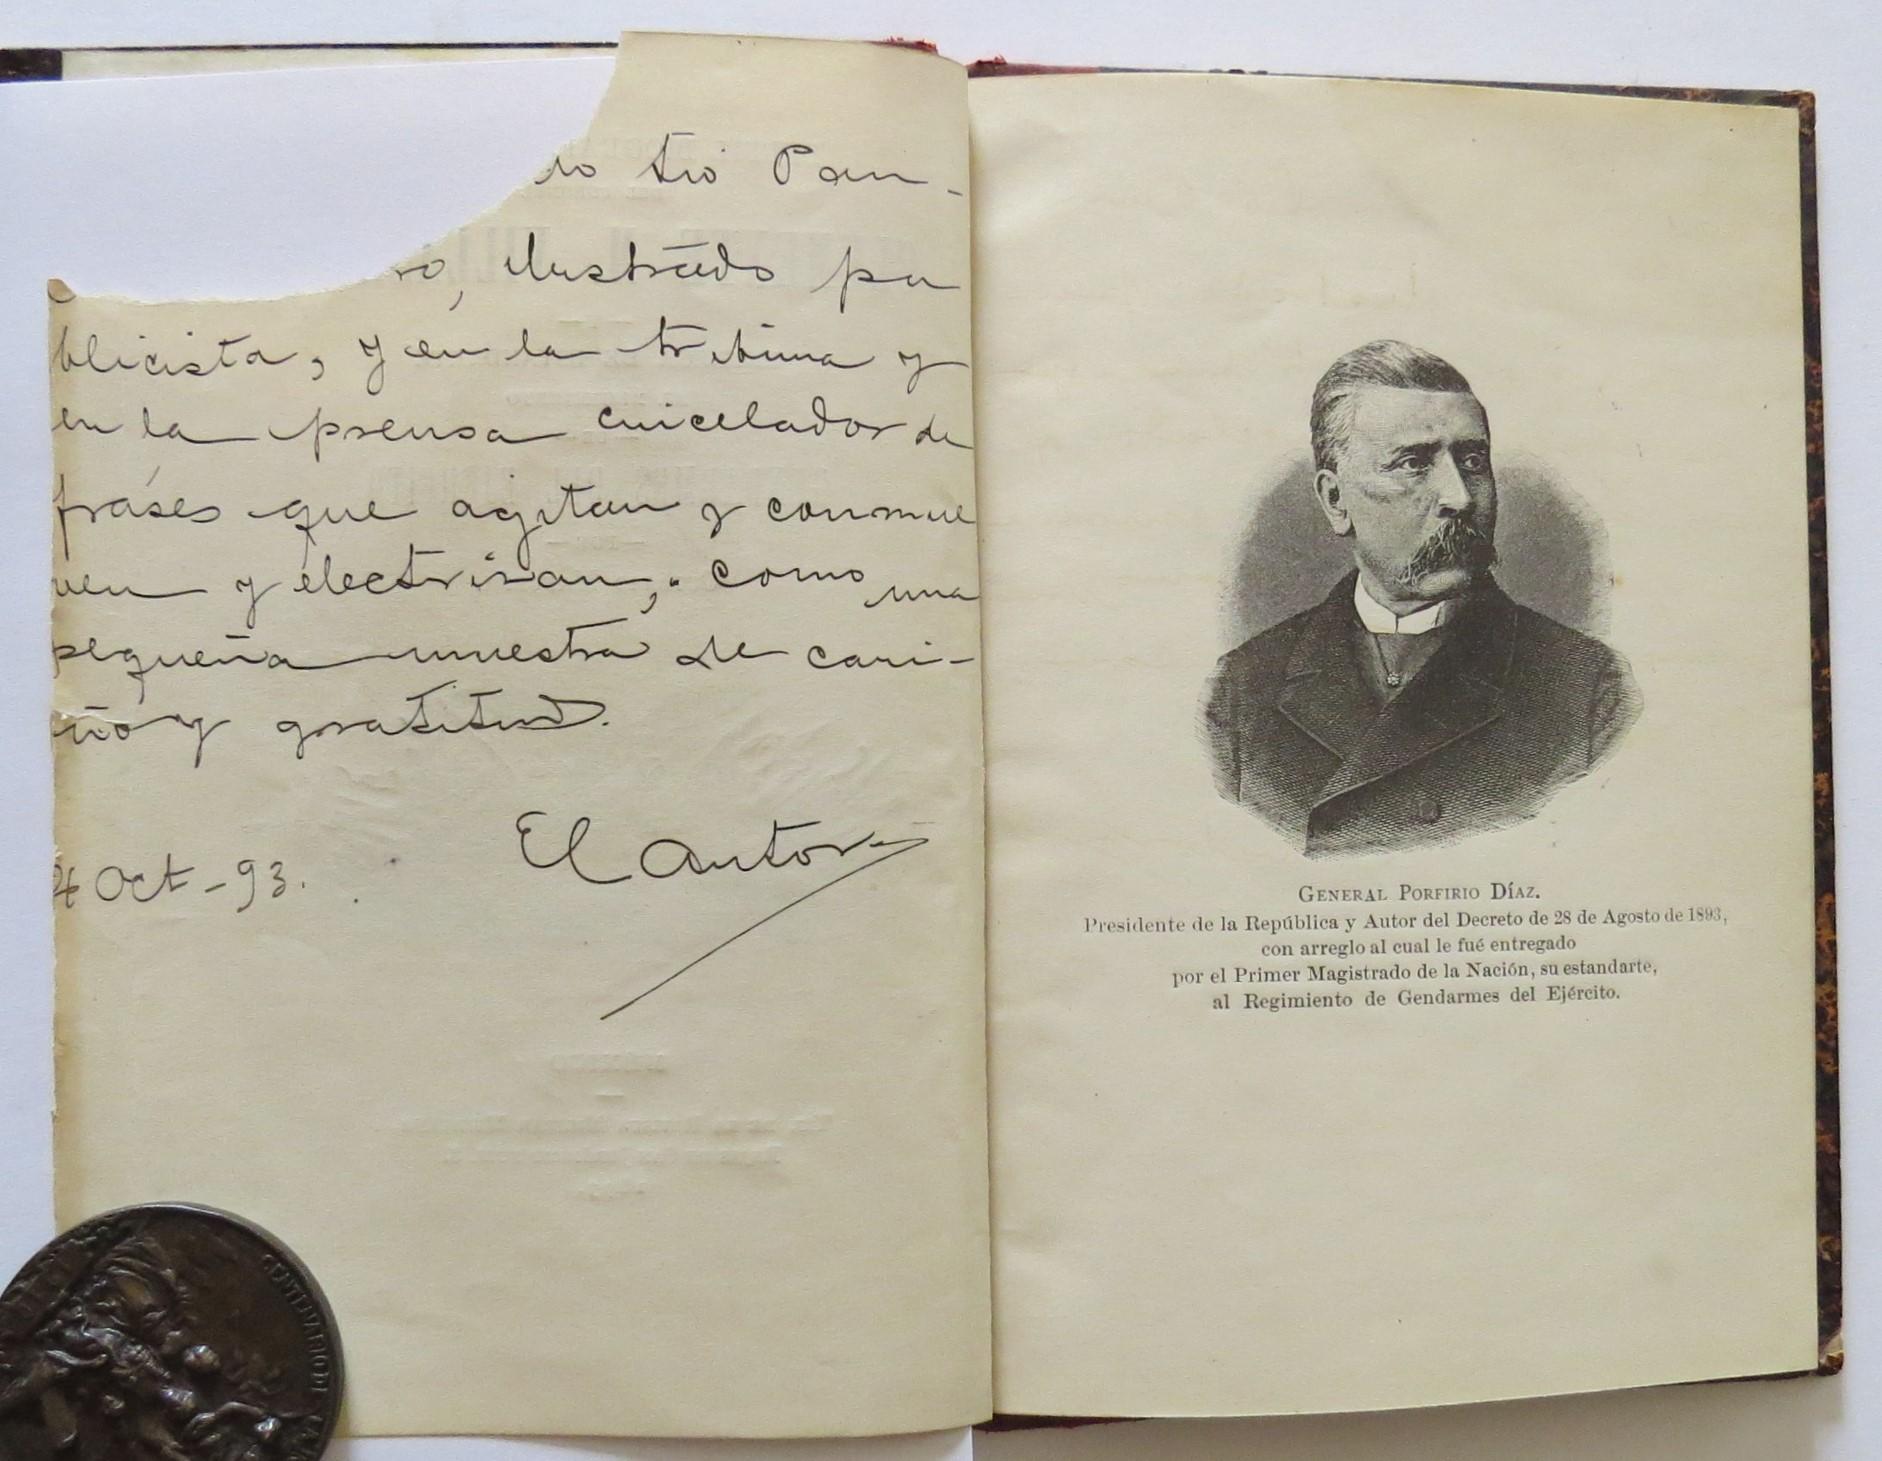 tio Pan-
ilustrado pu
blicista, y en la tribuna y
en la prensa cincelador de
frases que agitan y conmue
ven y electrisan; como una
pequeña muestra de cari-
ño y gratitud.
El autor
4 Oct-93.
GENERAL PORFIRIO DÍAZ.
Presidente de la República y Autor del Decreto de 28 de Agosto de 1893,
con arreglo al cual le fué entregado
por el Primer Magistrado de la Nación, su estandarte,
al Regimiento de Gendarmes del Ejército.
CENTENARIO DE